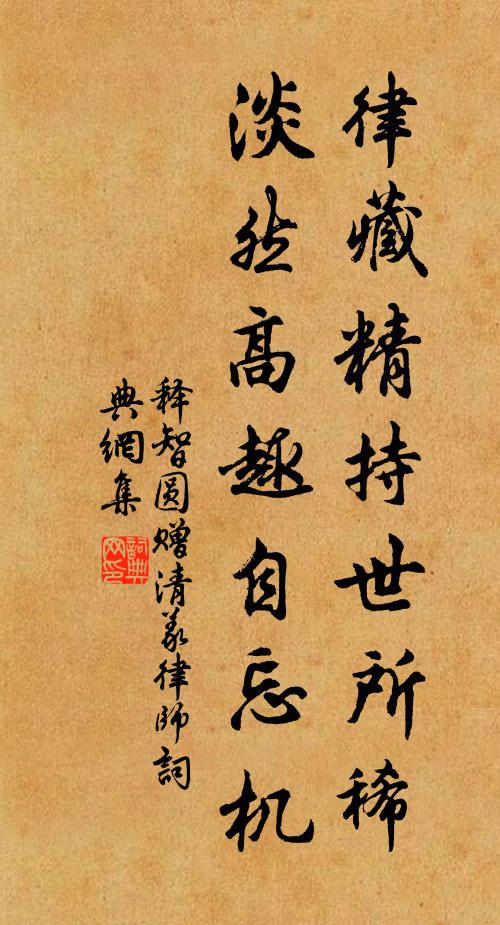 律藏精持世所稀
淡然高趣自忘机
释智圆赠清义律师詞
典網集
詞典网印